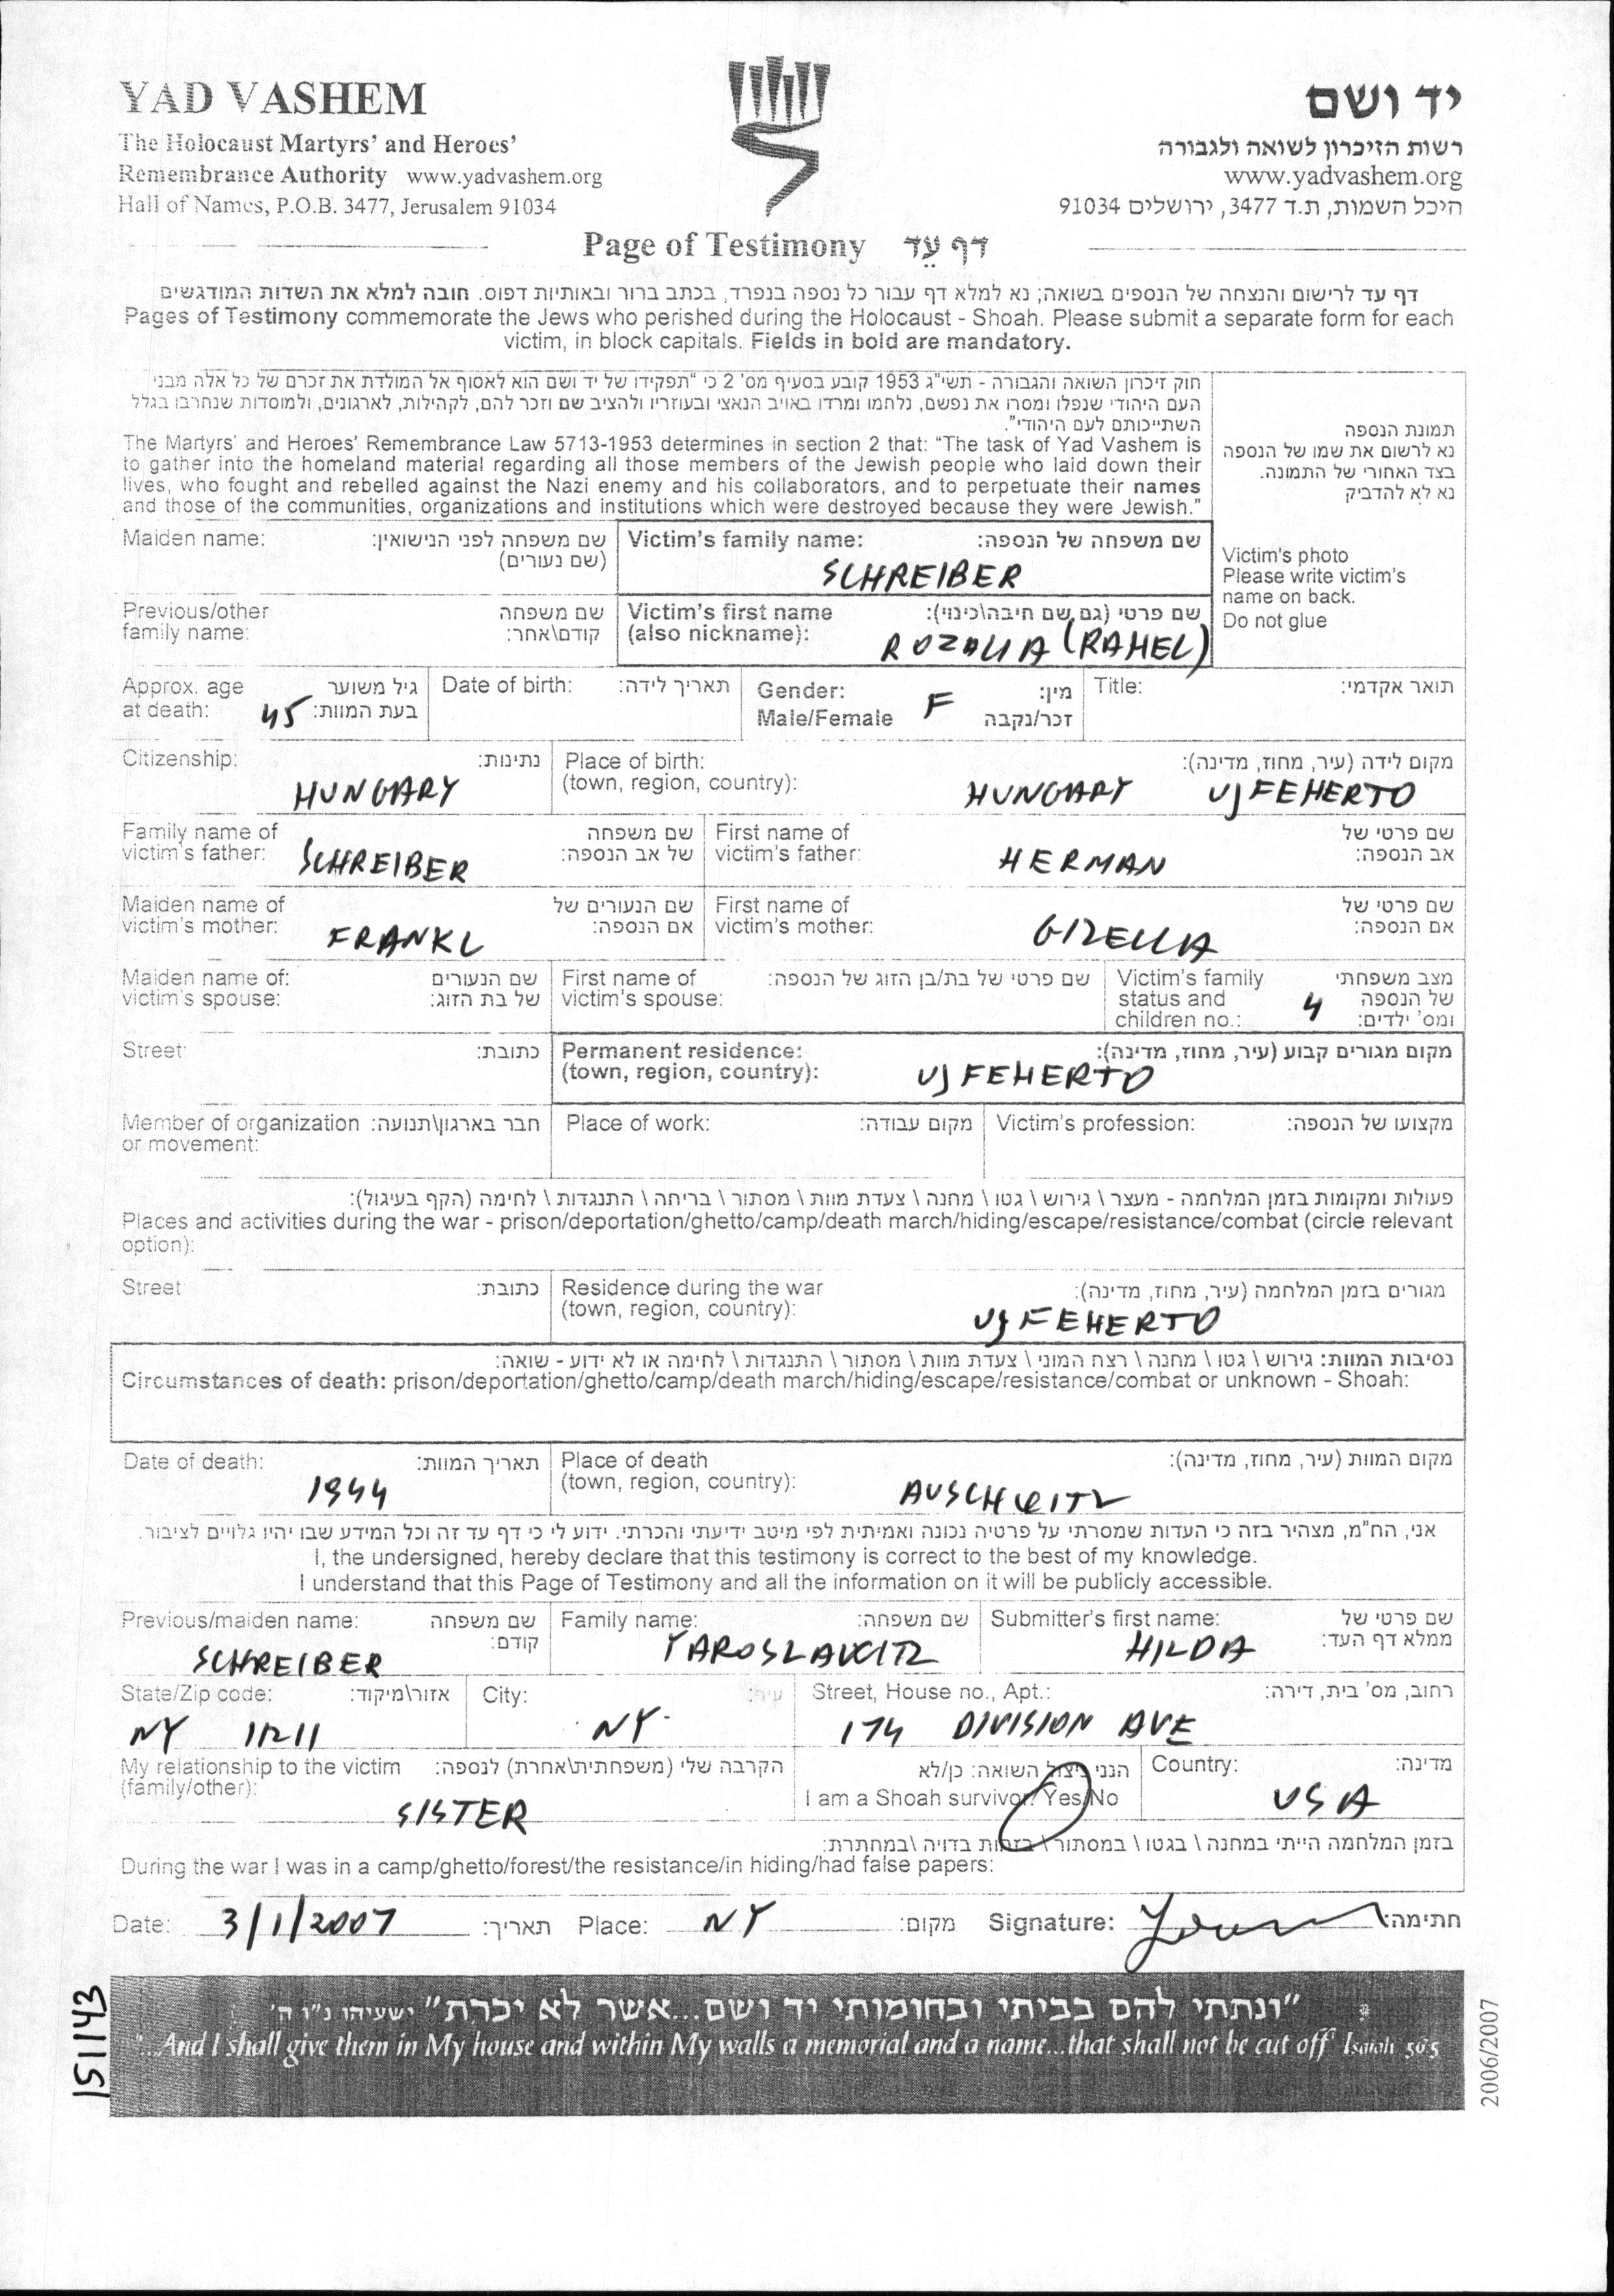 YAD VASHEM
The Holocaust Martyrs' and Heroes'
Remembrance Authority www.yadvashem.org
Hall of Names, P.O.B. 3477, Jerusalem 91034
יד ושם
רשות הזיכרון לשואה ולגבורה
www.yadvashem.org
היכל השמות, ת.ד 3477, ירושלים 91034
Page of Testimony דף עֵד
דף עד לרישום והנצחה של הנספים בשואה; נא למלא דף עבור כל נספה בנפרד, בכתב ברור ובאותיות דפוס. חובה למלא את השדות המודגשים
Pages of Testimony commemorate the Jews who perished during the Holocaust - Shoah. Please submit a separate form for each
victim, in block capitals. Fields in bold are mandatory.
חוק זיכרון השואה והגבורה - תשי"ג 1953 קובע בסעיף מס' 2 כי "תפקידו של יד ושם הוא לאסוף אל המולדת את זכרם של כל אלה מבני
העם היהודי שנפלו ומסרו את נפשם, נלחמו ומרדו באויב הנאצי ובעוזריו ולהציב שם וזכר להם, לקהילות, לארגונים, ולמוסדות שנחרבו בגלל
השתייכותם לעם היהודי".
The Martyrs' and Heroes' Remembrance Law 5713-1953 determines in section 2 that: "The task of Yad Vashem is
to gather into the homeland material regarding all those members of the Jewish people who laid down their
lives, who fought and rebelled against the Nazi enemy and his collaborators, and to perpetuate their names
and those of the communities, organizations and institutions which were destroyed because they were Jewish."
תמונת הנספה
נא לרשום את שמו של הנספה
בצד האחורי של התמונה.
נא לא להדביק
Victim's photo
Please write victim's
name on back.
Do not glue
Maiden name: שם משפחה לפני הנישואין:
(שם נעורים)
Victim's family name: שם משפחה של הנספה:
SCHREIBER
Previous/other שם משפחה
family name: קודם\אחר:
Victim's first name שם פרטי (גם שם חיבה\כינוי):
(also nickname): ROZALIA (RAHEL)
Approx. age גיל משוער
at death: 45 בעת המוות:
Date of birth: תאריך לידה:
Gender: מין:
Male/Female F זכר/נקבה
Title: תואר אקדמי:
Citizenship: נתינות:
HUNGARY
Place of birth: מקום לידה (עיר, מחוז, מדינה):
(town, region, country): HUNGARY UJFEHERTO
Family name of שם משפחה
victim's father: SCHREIBER של אב הנספה:
First name of שם פרטי של
victim's father: HERMAN אב הנספה:
Maiden name of שם הנעורים של
victim's mother: FRANKL אם הנספה:
First name of שם פרטי של
victim's mother: GIZELLA אם הנספה:
Maiden name of: שם הנעורים
victim's spouse: של בת הזוג:
First name of שם פרטי של בת/בן הזוג של הנספה:
victim's spouse:
Victim's family מצב משפחתי
status and 4 של הנספה
children no.: ומס' ילדים:
Street: כתובת:
Permanent residence: מקום מגורים קבוע (עיר, מחוז, מדינה):
(town, region, country): UJFEHERTO
Member of organization חבר בארגון\תנועה:
or movement:
Place of work: מקום עבודה:
Victim's profession: מקצועו של הנספה:
פעולות ומקומות בזמן המלחמה - מעצר \ גירוש \ גטו \ מחנה \ צעדת מוות \ מסתור \ בריחה \ התנגדות \ לחימה (הקף בעיגול):
Places and activities during the war - prison/deportation/ghetto/camp/death march/hiding/escape/resistance/combat (circle relevant
option):
Street כתובת:
Residence during the war מגורים בזמן המלחמה (עיר, מחוז, מדינה):
(town, region, country): UJFEHERTO
נסיבות המוות: גירוש \ גטו \ מחנה \ רצח המוני \ צעדת מוות \ מסתור \ התנגדות \ לחימה או לא ידוע - שואה:
Circumstances of death: prison/deportation/ghetto/camp/death march/hiding/escape/resistance/combat or unknown - Shoah:
Date of death: תאריך המוות:
1944
Place of death מקום המוות (עיר, מחוז, מדינה):
(town, region, country): AUSCHWITZ
אני, הח"מ, מצהיר בזה כי העדות שמסרתי על פרטיה נכונה ואמיתית לפי מיטב ידיעתי והכרתי. ידוע לי כי דף עד זה וכל המידע שבו יהיו גלויים לציבור.
I, the undersigned, hereby declare that this testimony is correct to the best of my knowledge.
I understand that this Page of Testimony and all the information on it will be publicly accessible.
Previous/maiden name: שם משפחה
קודם:
SCHREIBER
Family name: שם משפחה:
YAROSLAWITZ
Submitter's first name: שם פרטי של
HILDA ממלא דף העד:
State/Zip code: אזור\מיקוד:
NY 11211
City: עיר:
NY
Street, House no., Apt.: רחוב, מס' בית, דירה:
174 DIVISION AVE
My relationship to the victim הקרבה שלי (משפחתית\אחרת) לנספה:
(family/other):
SISTER
הנני ניצול השואה: כן/לא
I am a Shoah survivor: Yes/No
Country: מדינה:
USA
בזמן המלחמה הייתי במחנה \ בגטו \ במסתור \ בזהות בדויה \במחתרת:
During the war I was in a camp/ghetto/forest/the resistance/in hiding/had false papers:
Date: 3/1/2007 תאריך: Place: NY מקום: Signature: חתימה:
"ונתתי להם בביתי ובחומותי יד ושם...אשר לא יכרת" ישעיהו נ"ו ה'
"...And I shall give them in My house and within My walls a memorial and a name...that shall not be cut off" Isaiah 56:5
151143
2006/2007